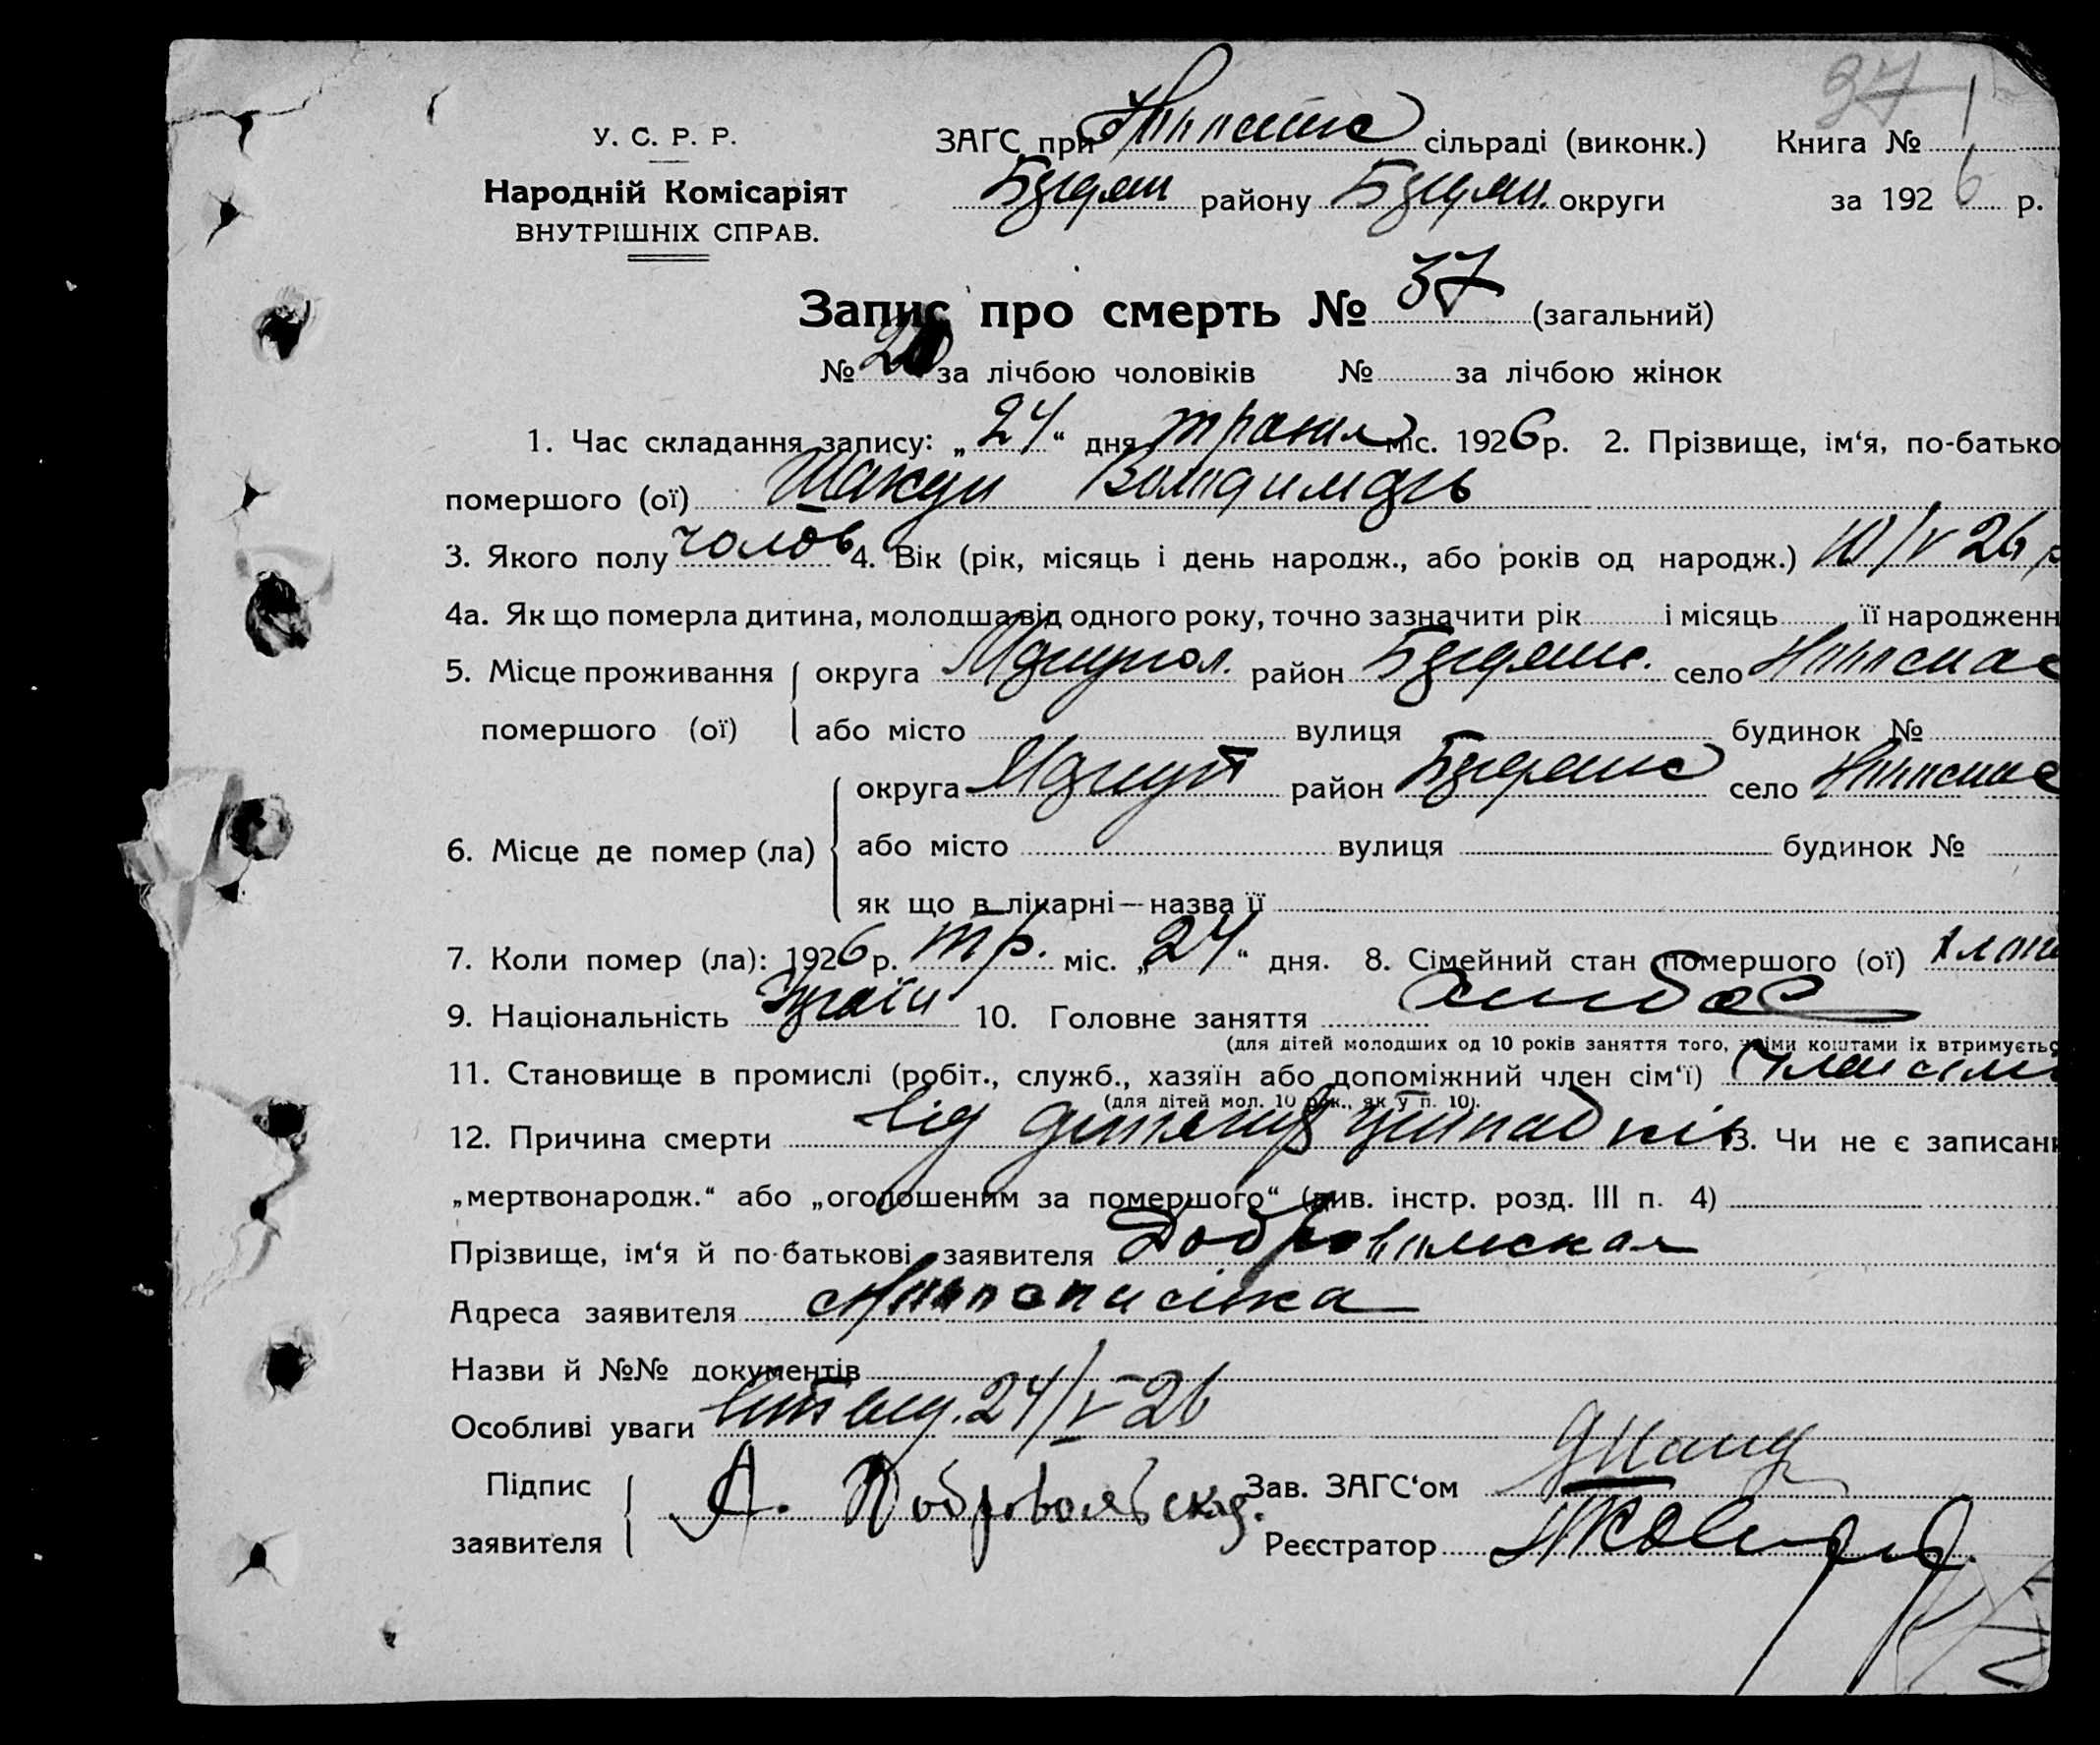 37
У. С. Р. Р.
ЗАГС при сільраді (виконк.) Книга № 1
Народній Комісаріят
району округи за 1926 р.
ВНУТРІШНІХ СПРАВ.
Запис про смерть № 37 (загальний)
№ за лічбою чоловіків № за лічбою жінок
1. Час складання запису: „24“ дня травня міс. 1926 р. 2. Прізвище, ім‘я, по-батько
помершого (ої) Володимир
3. Якого полу чолов 4. Вік (рік, місяць і день народж., або років од народж.) 10/V 26 р
4а. Як що померла дитина, молодша від одного року, точно зазначити рік і місяць її народженн
5. Місце проживання округа Маріупол. район село
помершого (ої) або місто вулиця будинок №
округа Маріуп район село
6. Місце де помер (ла) або місто вулиця будинок №
як що в лікарні—назва її
7. Коли помер (ла): 1926 р. тр. міс. „24“ дня. 8. Сімейний стан помершого (ої)
9. Національність 10. Головне заняття
(для дітей молодших од 10 років заняття того, чиїми коштами їх втримуєтьс
11. Становище в промислі (робіт., служб., хазяїн або допоміжний член сім‘ї)
(для дітей мол. 10 рок., як у п. 10).
12. Причина смерти від 13. Чи не є записани
„мертвонародж.“ або „оголошеним за помершого“ (див. інстр. розд. III п. 4)
Прізвище, ім‘я й по-батькові заявителя Добровольская
Адреса заявителя
Назви й №№ документів
Особливі уваги 24/V-26
Підпис Зав. ЗАГС‘ом
заявителя А. Добровольская. Реєстратор